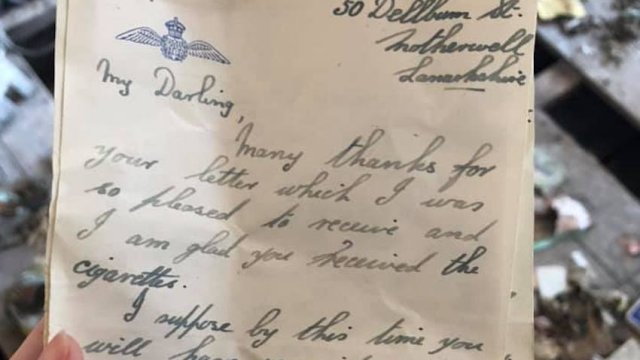 50 Dellburn St.
Motherwell
Lanarkshire
My Darling,
Many thanks for
your letter which I was
so pleased to receive and
I am glad you received the
cigarettes.
I suppose by this time you
will have